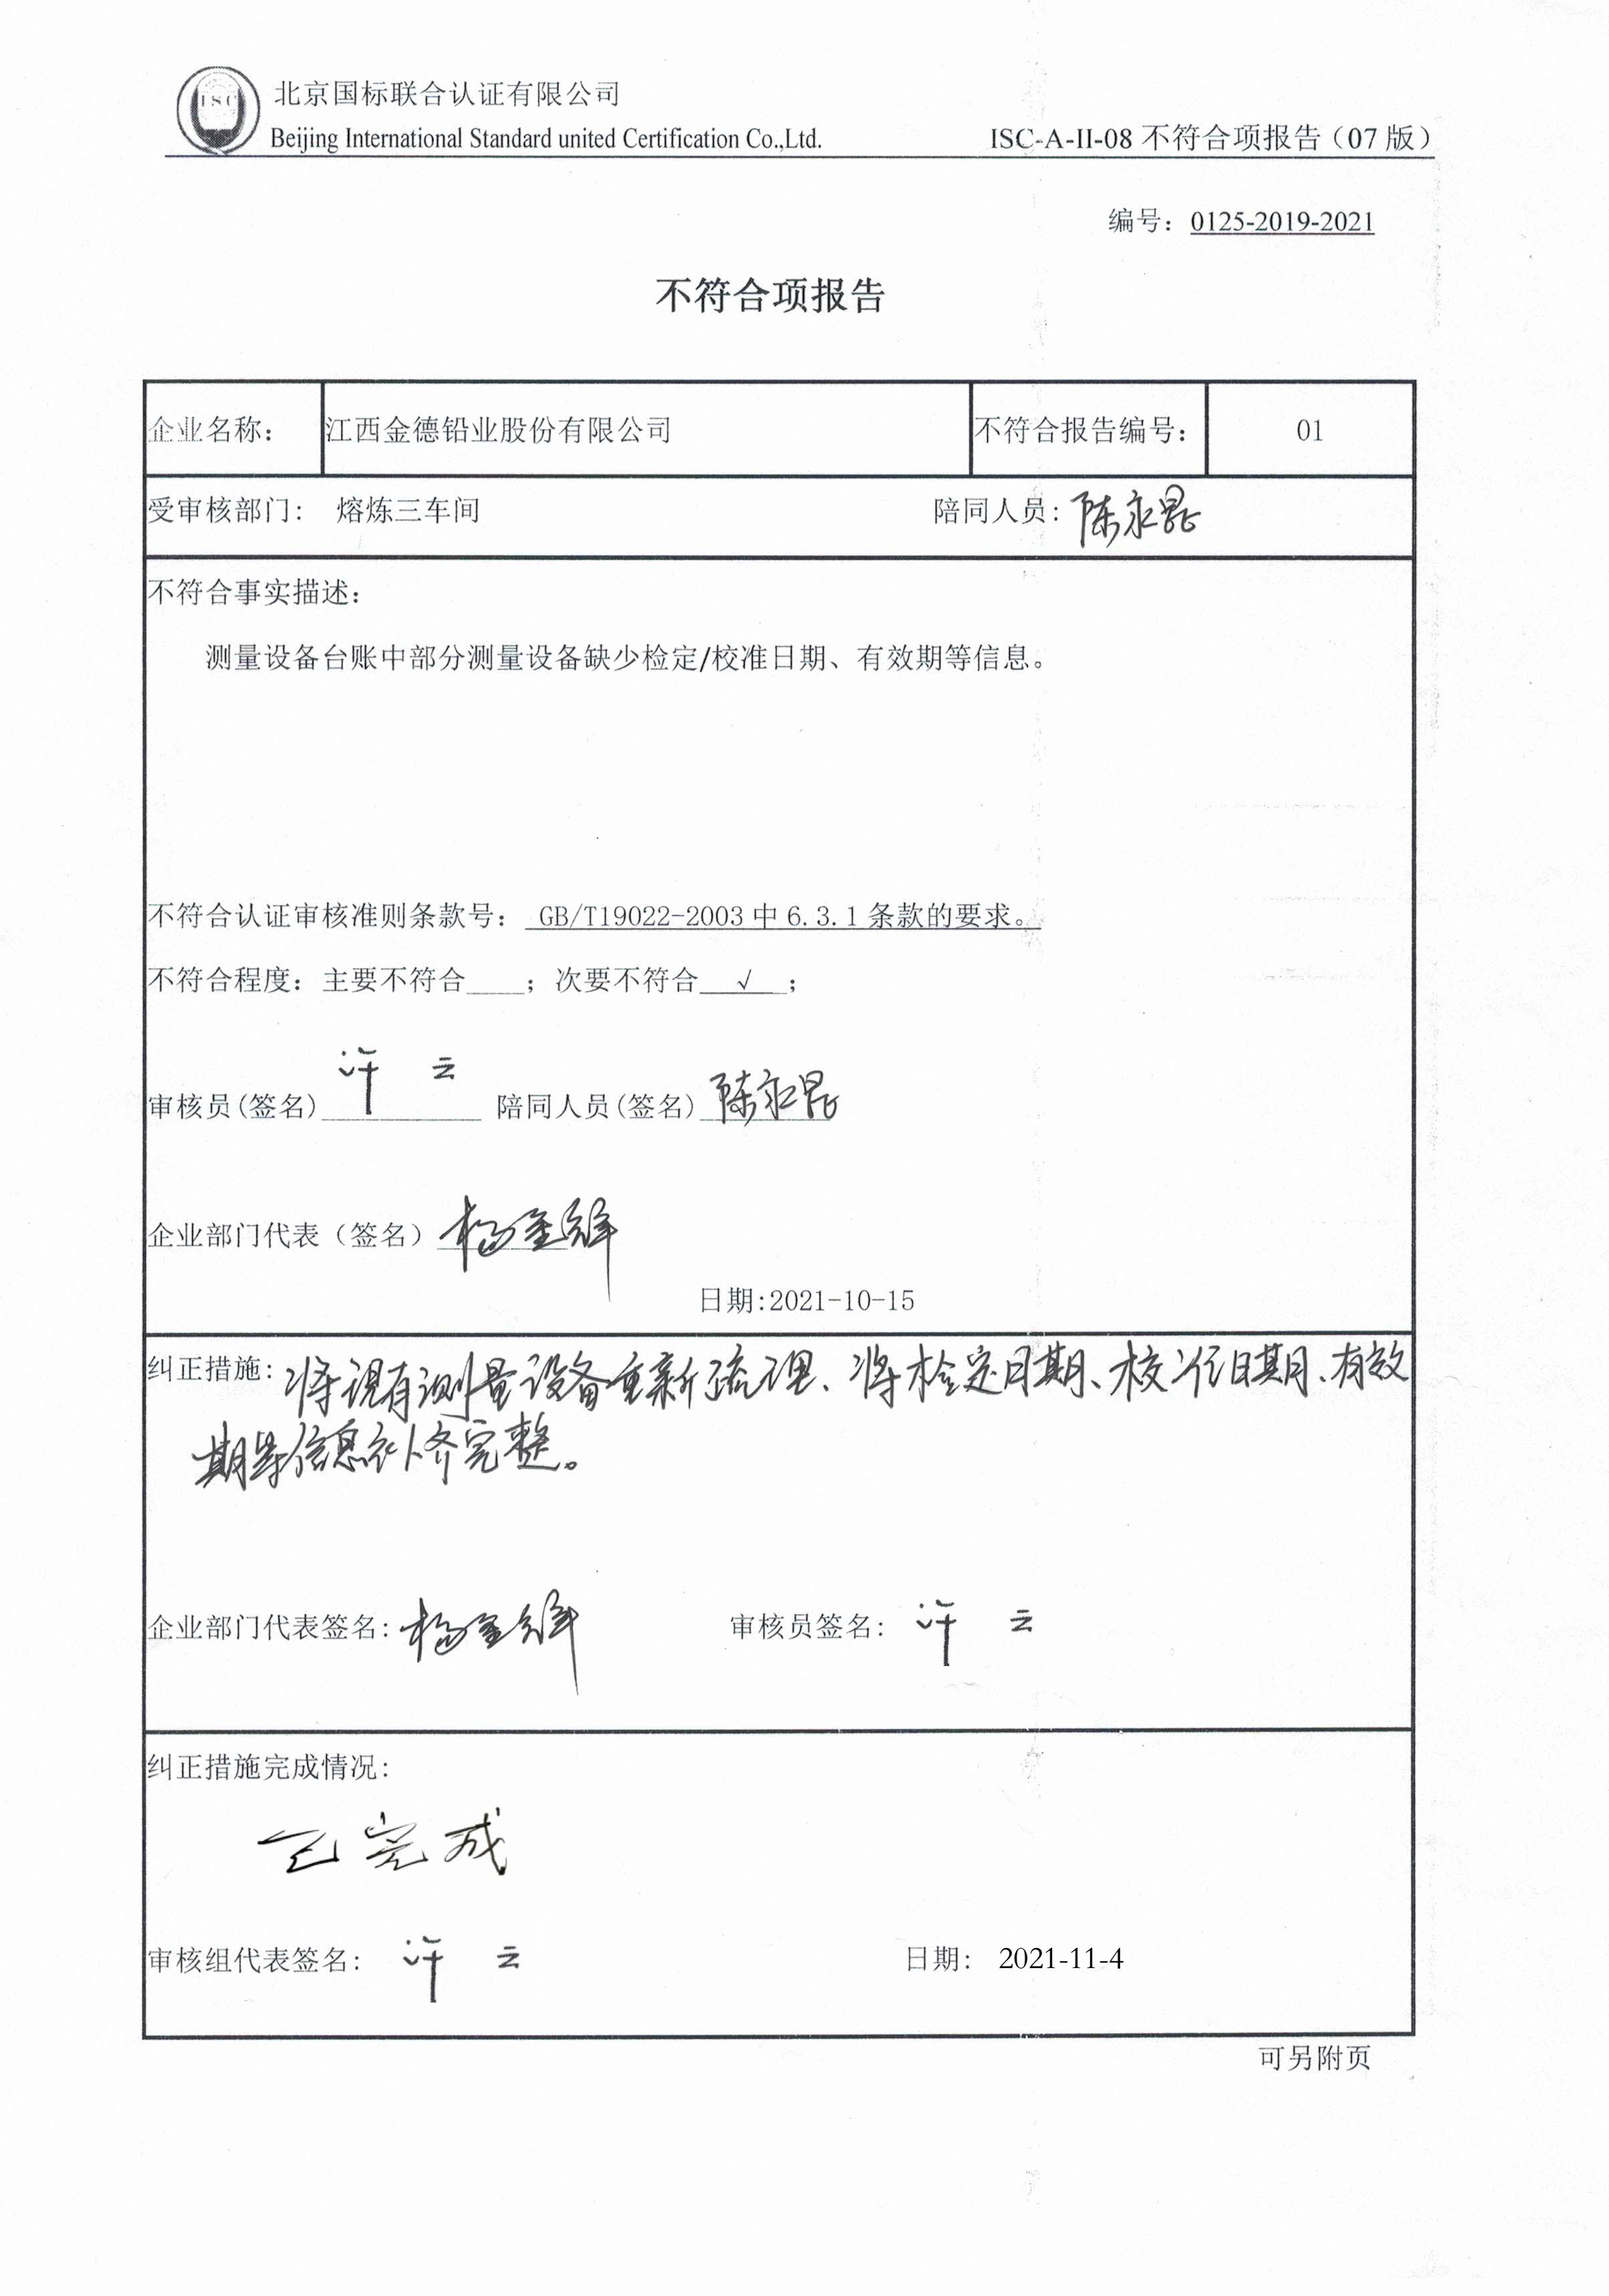 ISC
北京国标联合认证有限公司
Beijing International Standard united Certification Co.,Ltd.
ISC-A-II-08 不符合项报告（07 版）
编号：0125-2019-2021
不符合项报告
企业名称： 江西金德铅业股份有限公司 不符合报告编号： 01
受审核部门： 熔炼三车间 陪同人员：陈永昆
不符合事实描述：
测量设备台账中部分测量设备缺少检定/校准日期、有效期等信息。
不符合认证审核准则条款号： GB/T19022-2003 中 6.3.1 条款的要求。
不符合程度：主要不符合____；次要不符合 √ ；
审核员(签名) 许 云 陪同人员(签名) 陈永昆
企业部门代表（签名）杨金辉
日期:2021-10-15
纠正措施：将现有测量设备重新疏理、将检定日期、校准日期、有效
期等信息补齐完整。
企业部门代表签名：杨金辉 审核员签名： 许 云
纠正措施完成情况：
已完成
审核组代表签名： 许 云 日期： 2021-11-4
可另附页